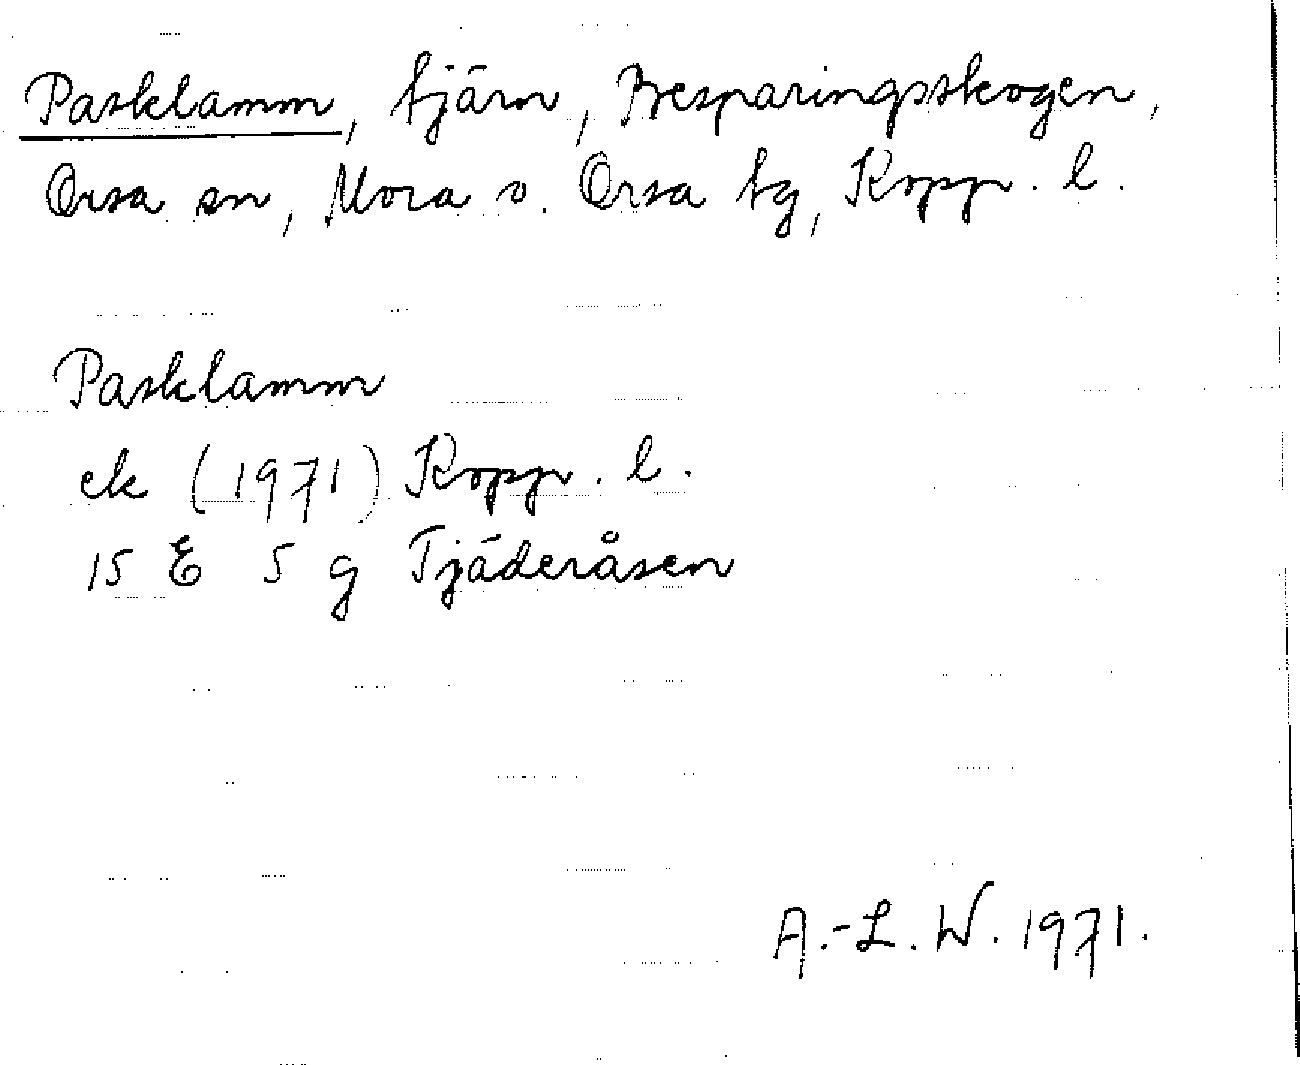 Pasklamm, tjärn, Besparingsskogen,
Orsa sn, Mora o. Orsa tg, Kopp. l.
Pasklamm
ek (1971) Kopp. l.
15 E 5 g Tjäderåsen
A.-L. W. 1971.